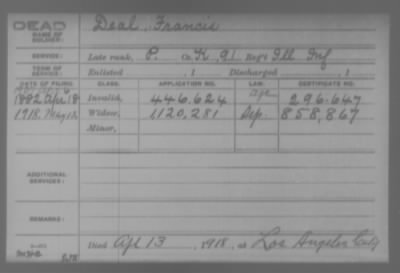 DEAD
NAME OF SOLDIER:
Deal, Francis
SERVICE:
Late rank, P. Co. K, 91 Reg't Ill Inf
TERM OF SERVICE:
Enlisted , 1 Discharged , 1
DATE OF FILING. CLASS. APPLICATION NO. LAW. CERTIFICATE NO.
1882 Apr 18 Invalid, 446.624 Age 296.647
1918. May 13 Widow, 1120,281 Sep. 858,867
Minor,
ADDITIONAL SERVICES:
REMARKS:
Died Apl 13, 1918, at Los Angeles Calif